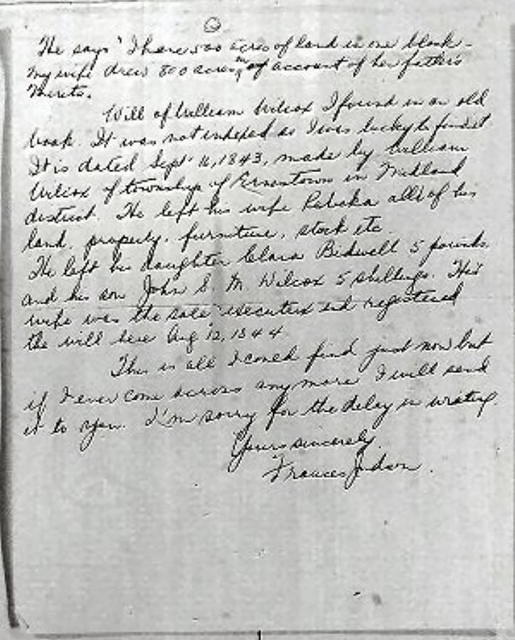 He says "I have 500 acres of land in one block -
my wife drew 800 acres, on account of her father's
merits.
Will of William Wilcox I found in an old
book. It was not indexed so I was lucky to find it
It is dated Sept 16, 1843, made by William
Wilcox of township of Ernestown in Midland
district. He left his wife Rebeka all of his
land, property, furniture, stock etc.
He left his daughter Clara Bidwell 5 pounds
and his son John S. M. Wilcox 5 shillings. His
wife was the sole executrix and registered
the will here Aug 12, 1844
This is all I could find just now but
if I ever come across any more I will send
it to you. I'm sorry for the delay in writing.
Yours sincerely,
Frances Judson.